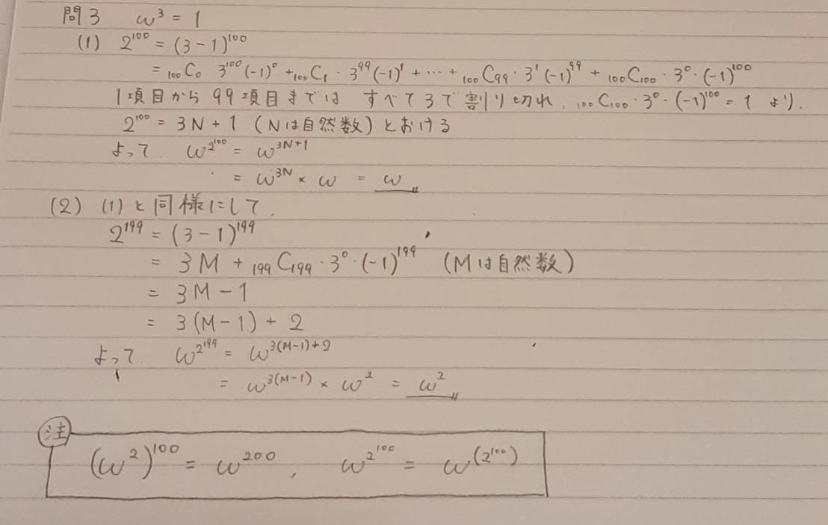 問3 ω³ = 1
(1) 2¹⁰⁰ = (3-1)¹⁰⁰
= ₁₀₀C₀ 3¹⁰⁰(-1)⁰ + ₁₀₀C₁・3⁹⁹(-1)¹ + … + ₁₀₀C₉₉・3¹(-1)⁹⁹ + ₁₀₀C₁₀₀・3⁰・(-1)¹⁰⁰
1項目から99項目までは すべて3で割り切れ、₁₀₀C₁₀₀・3⁰・(-1)¹⁰⁰ = 1 より、
2¹⁰⁰ = 3N + 1 (Nは自然数) とおける
よって ω^2¹⁰⁰ = ω^3N+1
= ω^3N × ω = ω
(2) (1)と同様にして
2¹⁹⁹ = (3-1)¹⁹⁹
= 3M + ₁₉₉C₁₉₉・3⁰・(-1)¹⁹⁹ (Mは自然数)
= 3M - 1
= 3(M-1) + 2
よって ω^2¹⁹⁹ = ω^3(M-1)+2
= ω^3(M-1) × ω² = ω²
注
(ω²)¹⁰⁰ = ω²⁰⁰, ω^2¹⁰⁰ = ω^(2¹⁰⁰)